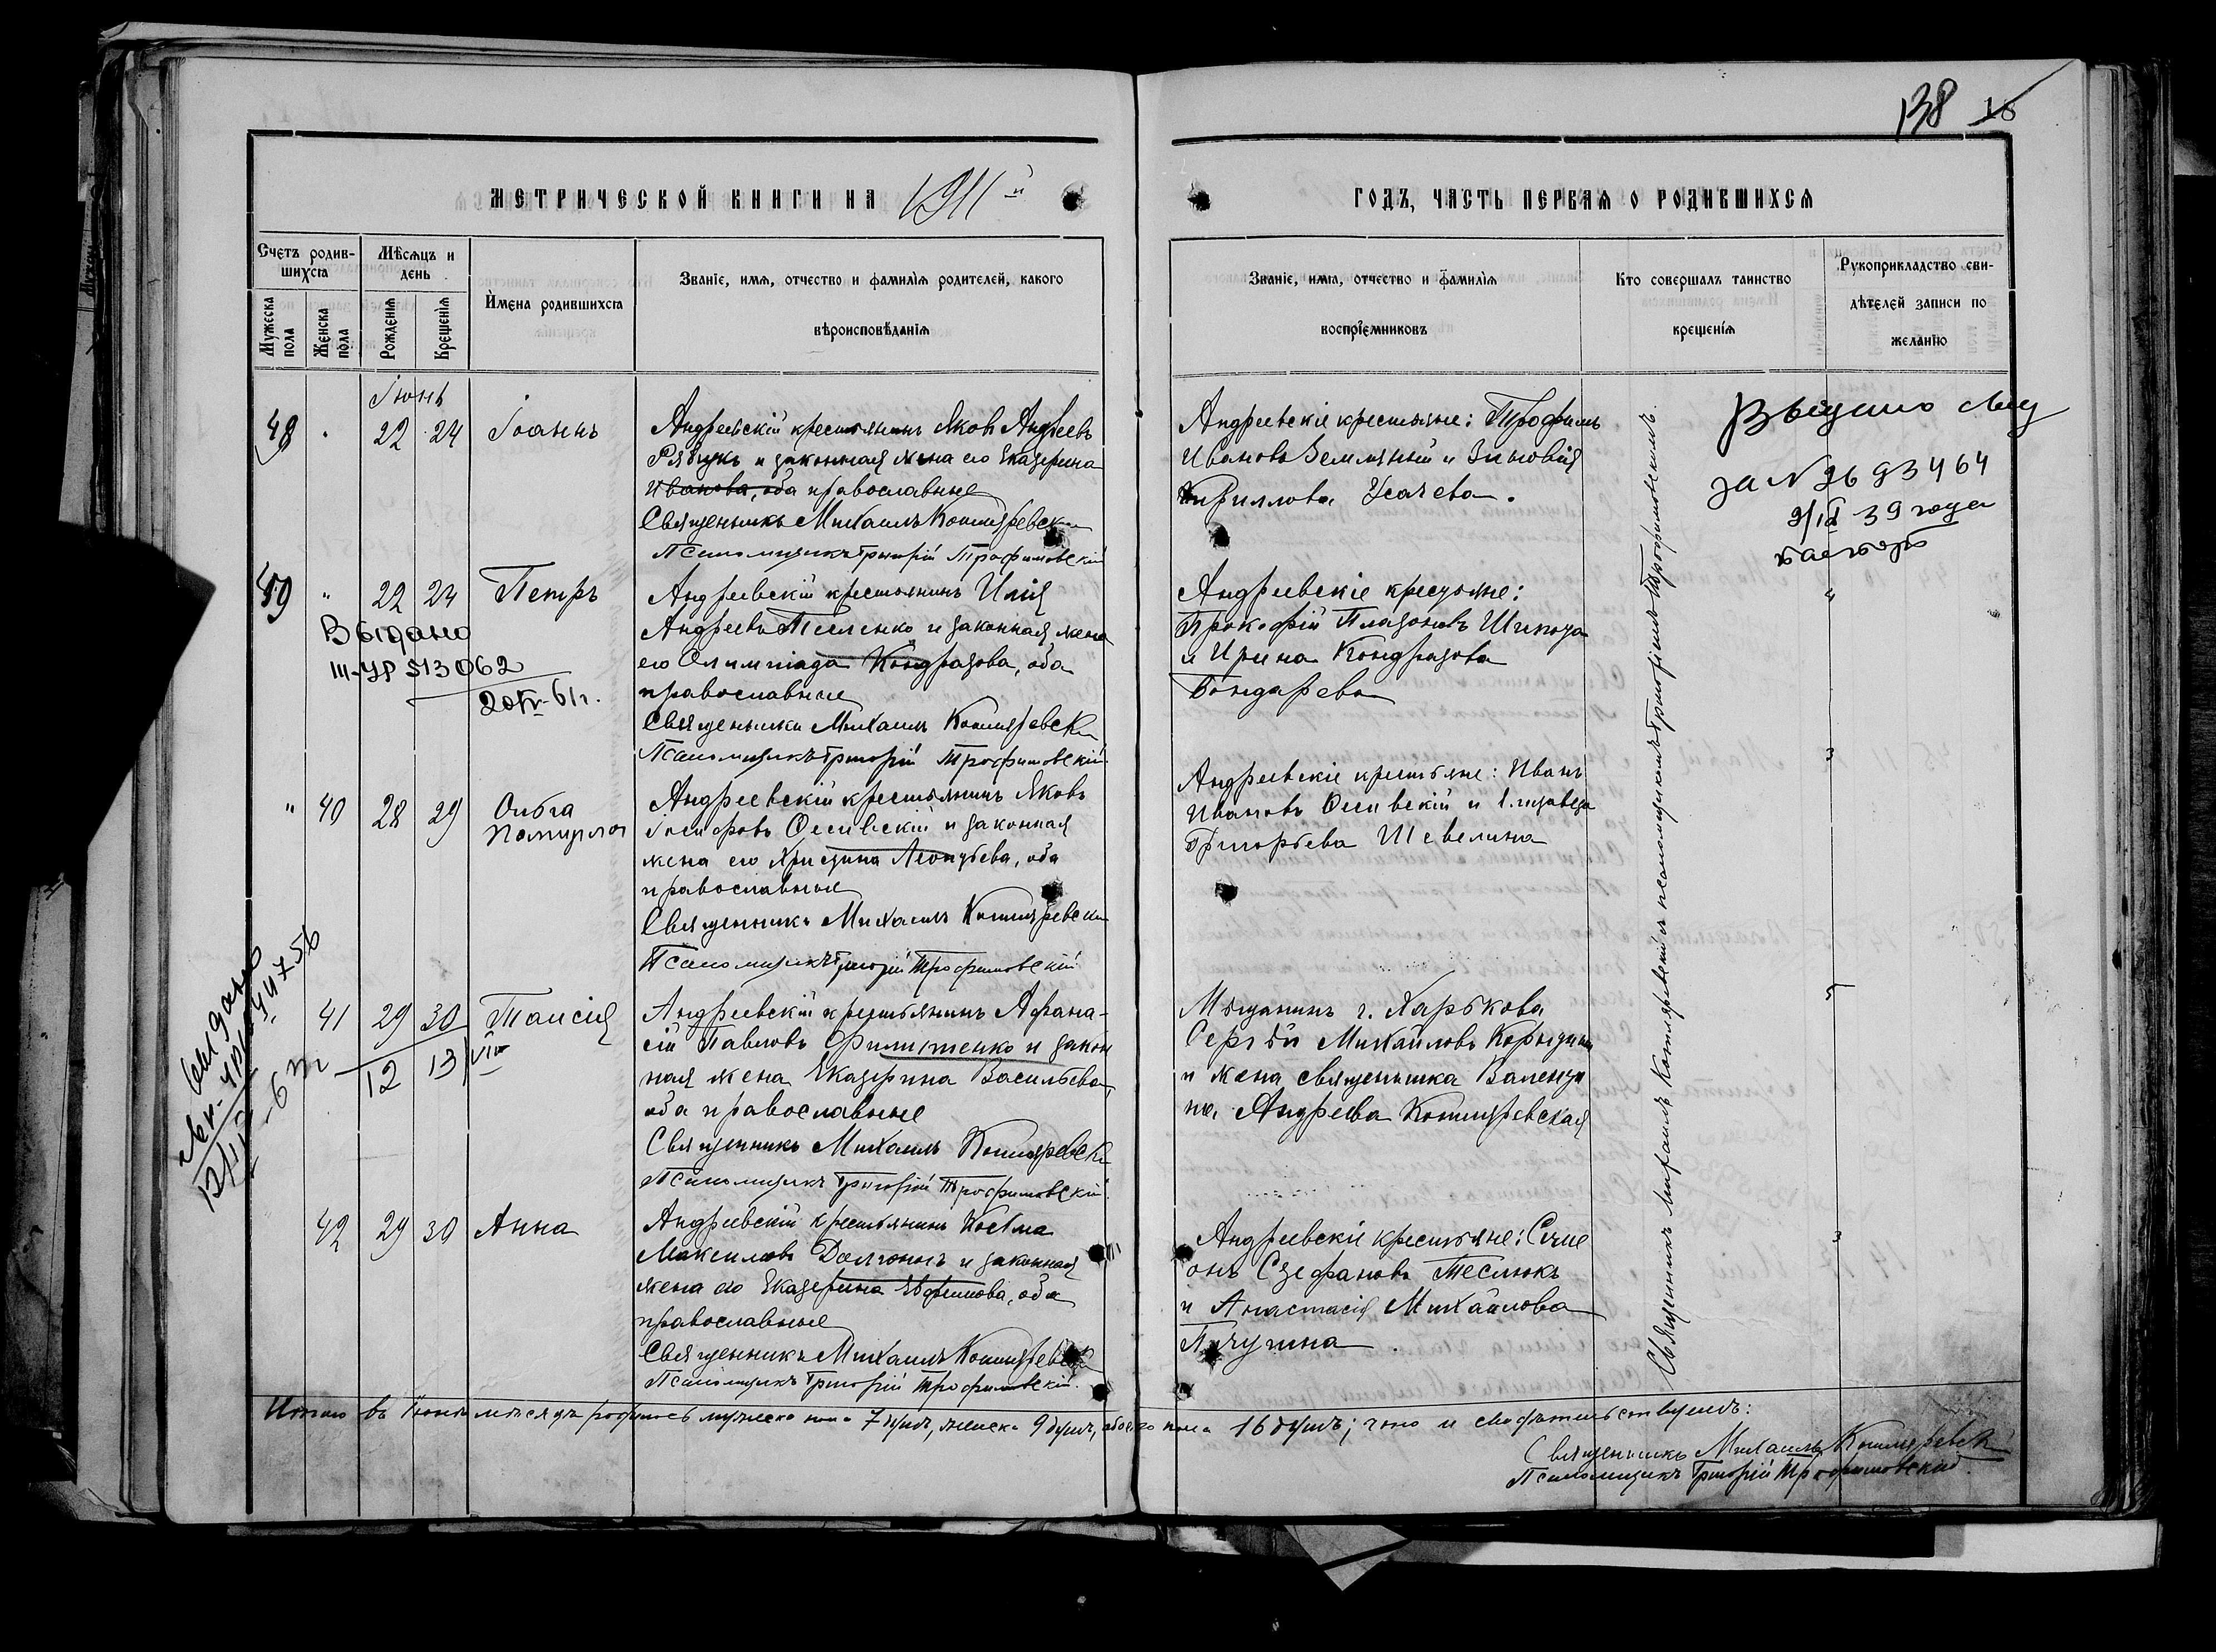 138 18
МЕТРИЧЕСКОЙ КНИГИ НА 1911й
ГОДЪ, ЧАСТЬ ПЕРВАЯ О РОДИВШИХСЯ
Счетъ родившихся
Мужеска пола
Женска пола
Мѣсяцъ и день
Рожденія
Крещенія
Имена родившихся
Званіе, имя, отчество и фамилія родителей, какого
вѣроисповѣданія
Званіе, имя, отчество и фамилія
воспріемниковъ
Кто совершалъ таинство
крещенія
Рукоприкладство сви-
дѣтелей записи по
желанію
Іюнь
48 22 24 Іоаннъ
Андреевскій крестьянинъ Яковъ Андреевъ
Рябукъ и законная жена его Екатерина
Иванова, оба православные
Священникъ Михаилъ Котляревскій
Псаломщикъ Григорій Трофимовскій
Андреевскіе крестьяне: Трофимъ
Ивановъ Земляный и Зиновія
Кириллова Усачева.
за N
9/IX 39 года
49 " 22 24 Петръ
Выдано
III-УР 513062
20/IV-61г.
Андреевскій крестьянинъ Илія
Андреевъ Теленко и законная жена
его Олимпіада Кондратова, оба
православные
Священникъ Михаилъ Котляревскій
Псаломщикъ Григорій Трофимовскій
Андреевскіе крестьяне:
Прокофій Платоновъ Шкода
и Ирина Кондратова
Бондарева
4
" 40 28 29 Ольга
Андреевскій крестьянинъ Яковъ
Іосифовъ Осивскій и законная
жена его Христина Леонтьева, оба
православные
Священникъ Михаилъ Котляревскій
Псаломщикъ Григорій Трофимовскій
Андреевскіе крестьяне: Иванъ
Ивановъ Осивскій и Елизавета
Григорьева Шевелина
3
выдано
41 29 30 Таисія
12 13/VII
Андреевскій крестьянинъ Афана-
сій Павловъ Филипенко и закон
ная жена Екатерина Васильева,
оба православные
Священникъ Михаилъ Котляревскій
Псаломщикъ Григорій Трофимовскій
Мѣщанинъ г. Харькова
Сергѣй Михайловъ
и жена священника Валенти
на Андреева Котляревская
5
42 29 30 Анна
Андреевскій крестьянинъ Косьма
Максимовъ Долгоносъ и законная
жена его Екатерина Евфимова, оба
православные
Священникъ Михаилъ Котляревскій
Псаломщикъ Григорій Трофимовскій
Андреевскіе крестьяне: Симе
онъ Стефановъ Теслюкъ
и Анастасія Михайлова
Пичугина
3
Священникъ Михаилъ Котляревскій и псаломщикомъ Григоріемъ Трофимовскимъ.
Итого въ Іюнѣ мѣсяцѣ родилось мужеска пола 7 душъ, женска 9 душъ, обоего пола 16 душъ; что и свидѣтельствуемъ:
Священникъ Михаилъ Котляревскій
Псаломщикъ Григорій Трофимовскій